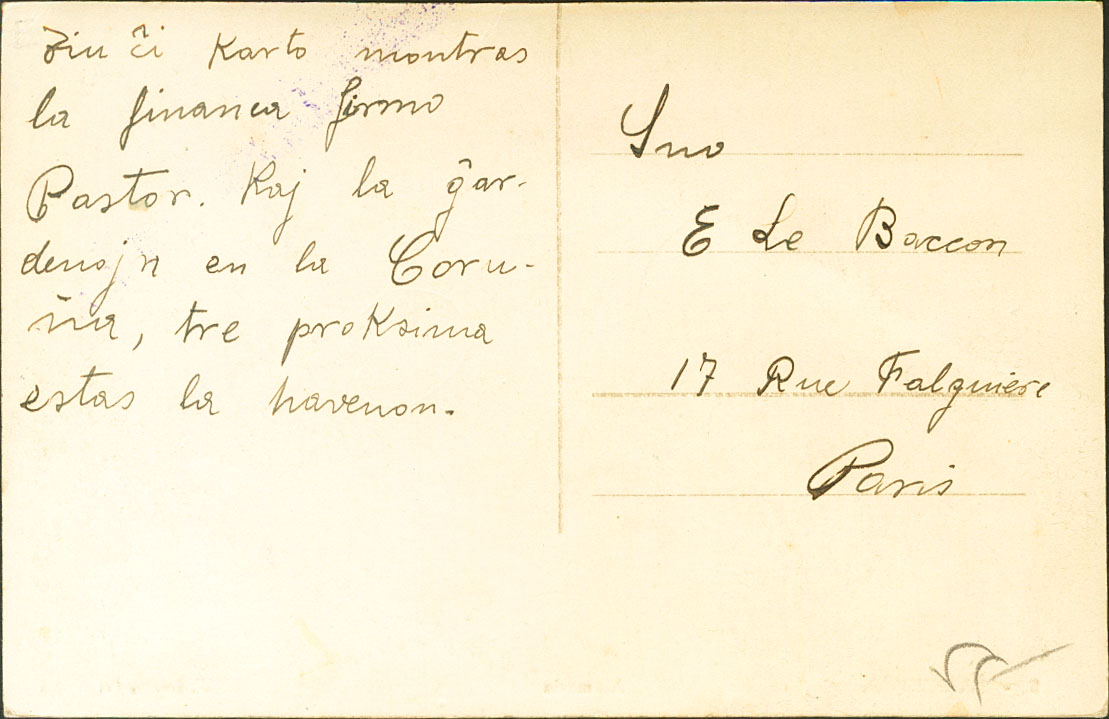 Tiu ĉi Karto montras
la financa firmo
Pastor. Kaj la ĝar-
denojn en la Coru-
ña, tre proksima
estas la havenon.
Sno
E Le Baccon
17 Rue Falguière
Paris